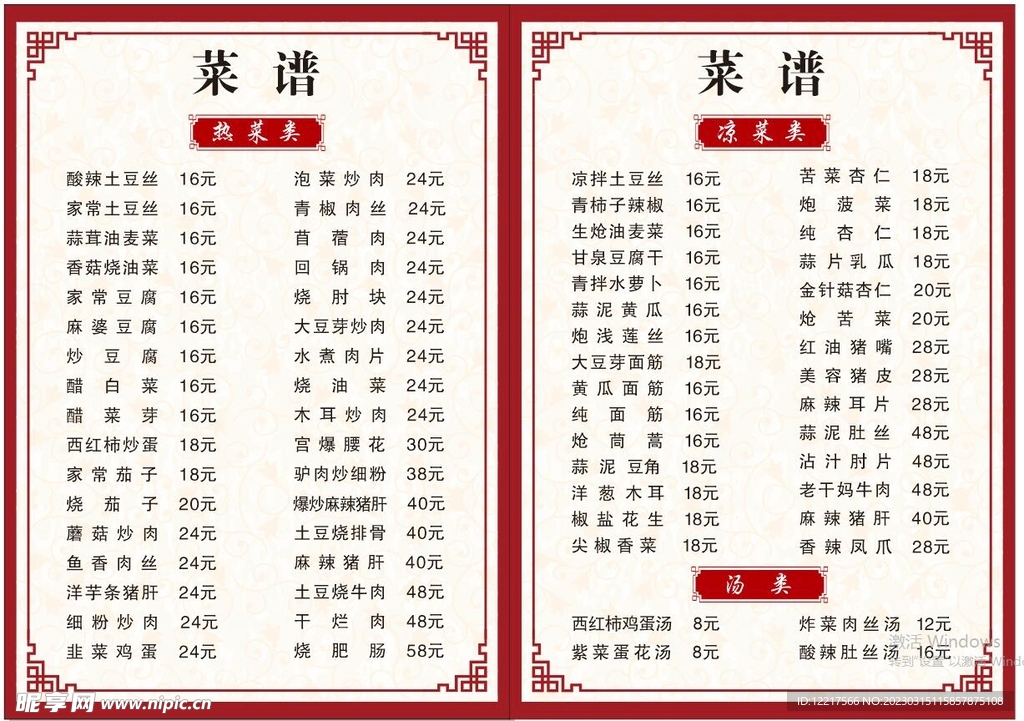 菜谱
热菜类
酸辣土豆丝 16元
家常土豆丝 16元
蒜茸油麦菜 16元
香菇烧油菜 16元
家常豆腐 16元
麻婆豆腐 16元
炒豆腐 16元
醋白菜 16元
醋菜芽 16元
西红柿炒蛋 18元
家常茄子 18元
烧茄子 20元
蘑菇炒肉 24元
鱼香肉丝 24元
洋芋条猪肝 24元
细粉炒肉 24元
韭菜鸡蛋 24元
泡菜炒肉 24元
青椒肉丝 24元
苜蓿肉 24元
回锅肉 24元
烧肘块 24元
大豆芽炒肉 24元
水煮肉片 24元
烧油菜 24元
木耳炒肉 24元
宫爆腰花 30元
驴肉炒细粉 38元
爆炒麻辣猪肝 40元
土豆烧排骨 40元
麻辣猪肝 40元
土豆烧牛肉 48元
干烂肉 48元
烧肥肠 58元
菜谱
凉菜类
凉拌土豆丝 16元
青柿子辣椒 16元
生炝油麦菜 16元
甘泉豆腐干 16元
青拌水萝卜 16元
蒜泥黄瓜 16元
炮浅莲丝 16元
大豆芽面筋 18元
黄瓜面筋 16元
纯面筋 16元
炝茼蒿 16元
蒜泥豆角 18元
洋葱木耳 18元
椒盐花生 18元
尖椒香菜 18元
苦菜杏仁 18元
炮菠菜 18元
纯杏仁 18元
蒜片乳瓜 18元
金针菇杏仁 20元
炝苦菜 20元
红油猪嘴 28元
美容猪皮 28元
麻辣耳片 28元
蒜泥肚丝 48元
沾汁肘片 48元
老干妈牛肉 48元
麻辣猪肝 40元
香辣凤爪 28元
汤类
西红柿鸡蛋汤 8元
紫菜蛋花汤 8元
炸菜肉丝汤 12元
酸辣肚丝汤 16元
激活 Windows
转到"设置"以激活 Windo
昵享网 www.nipic.cn
ID:12217566 NO:20230315115857875108